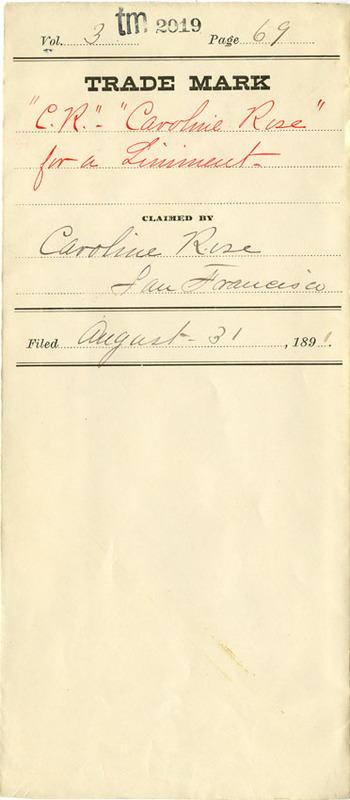 Vol. 3 tm 2019 Page 69
TRADE MARK
"C.R." - "Caroline Rose"
for a Liniment-
CLAIMED BY
Caroline Rose
San Francisco
Filed August - 31, 1891.